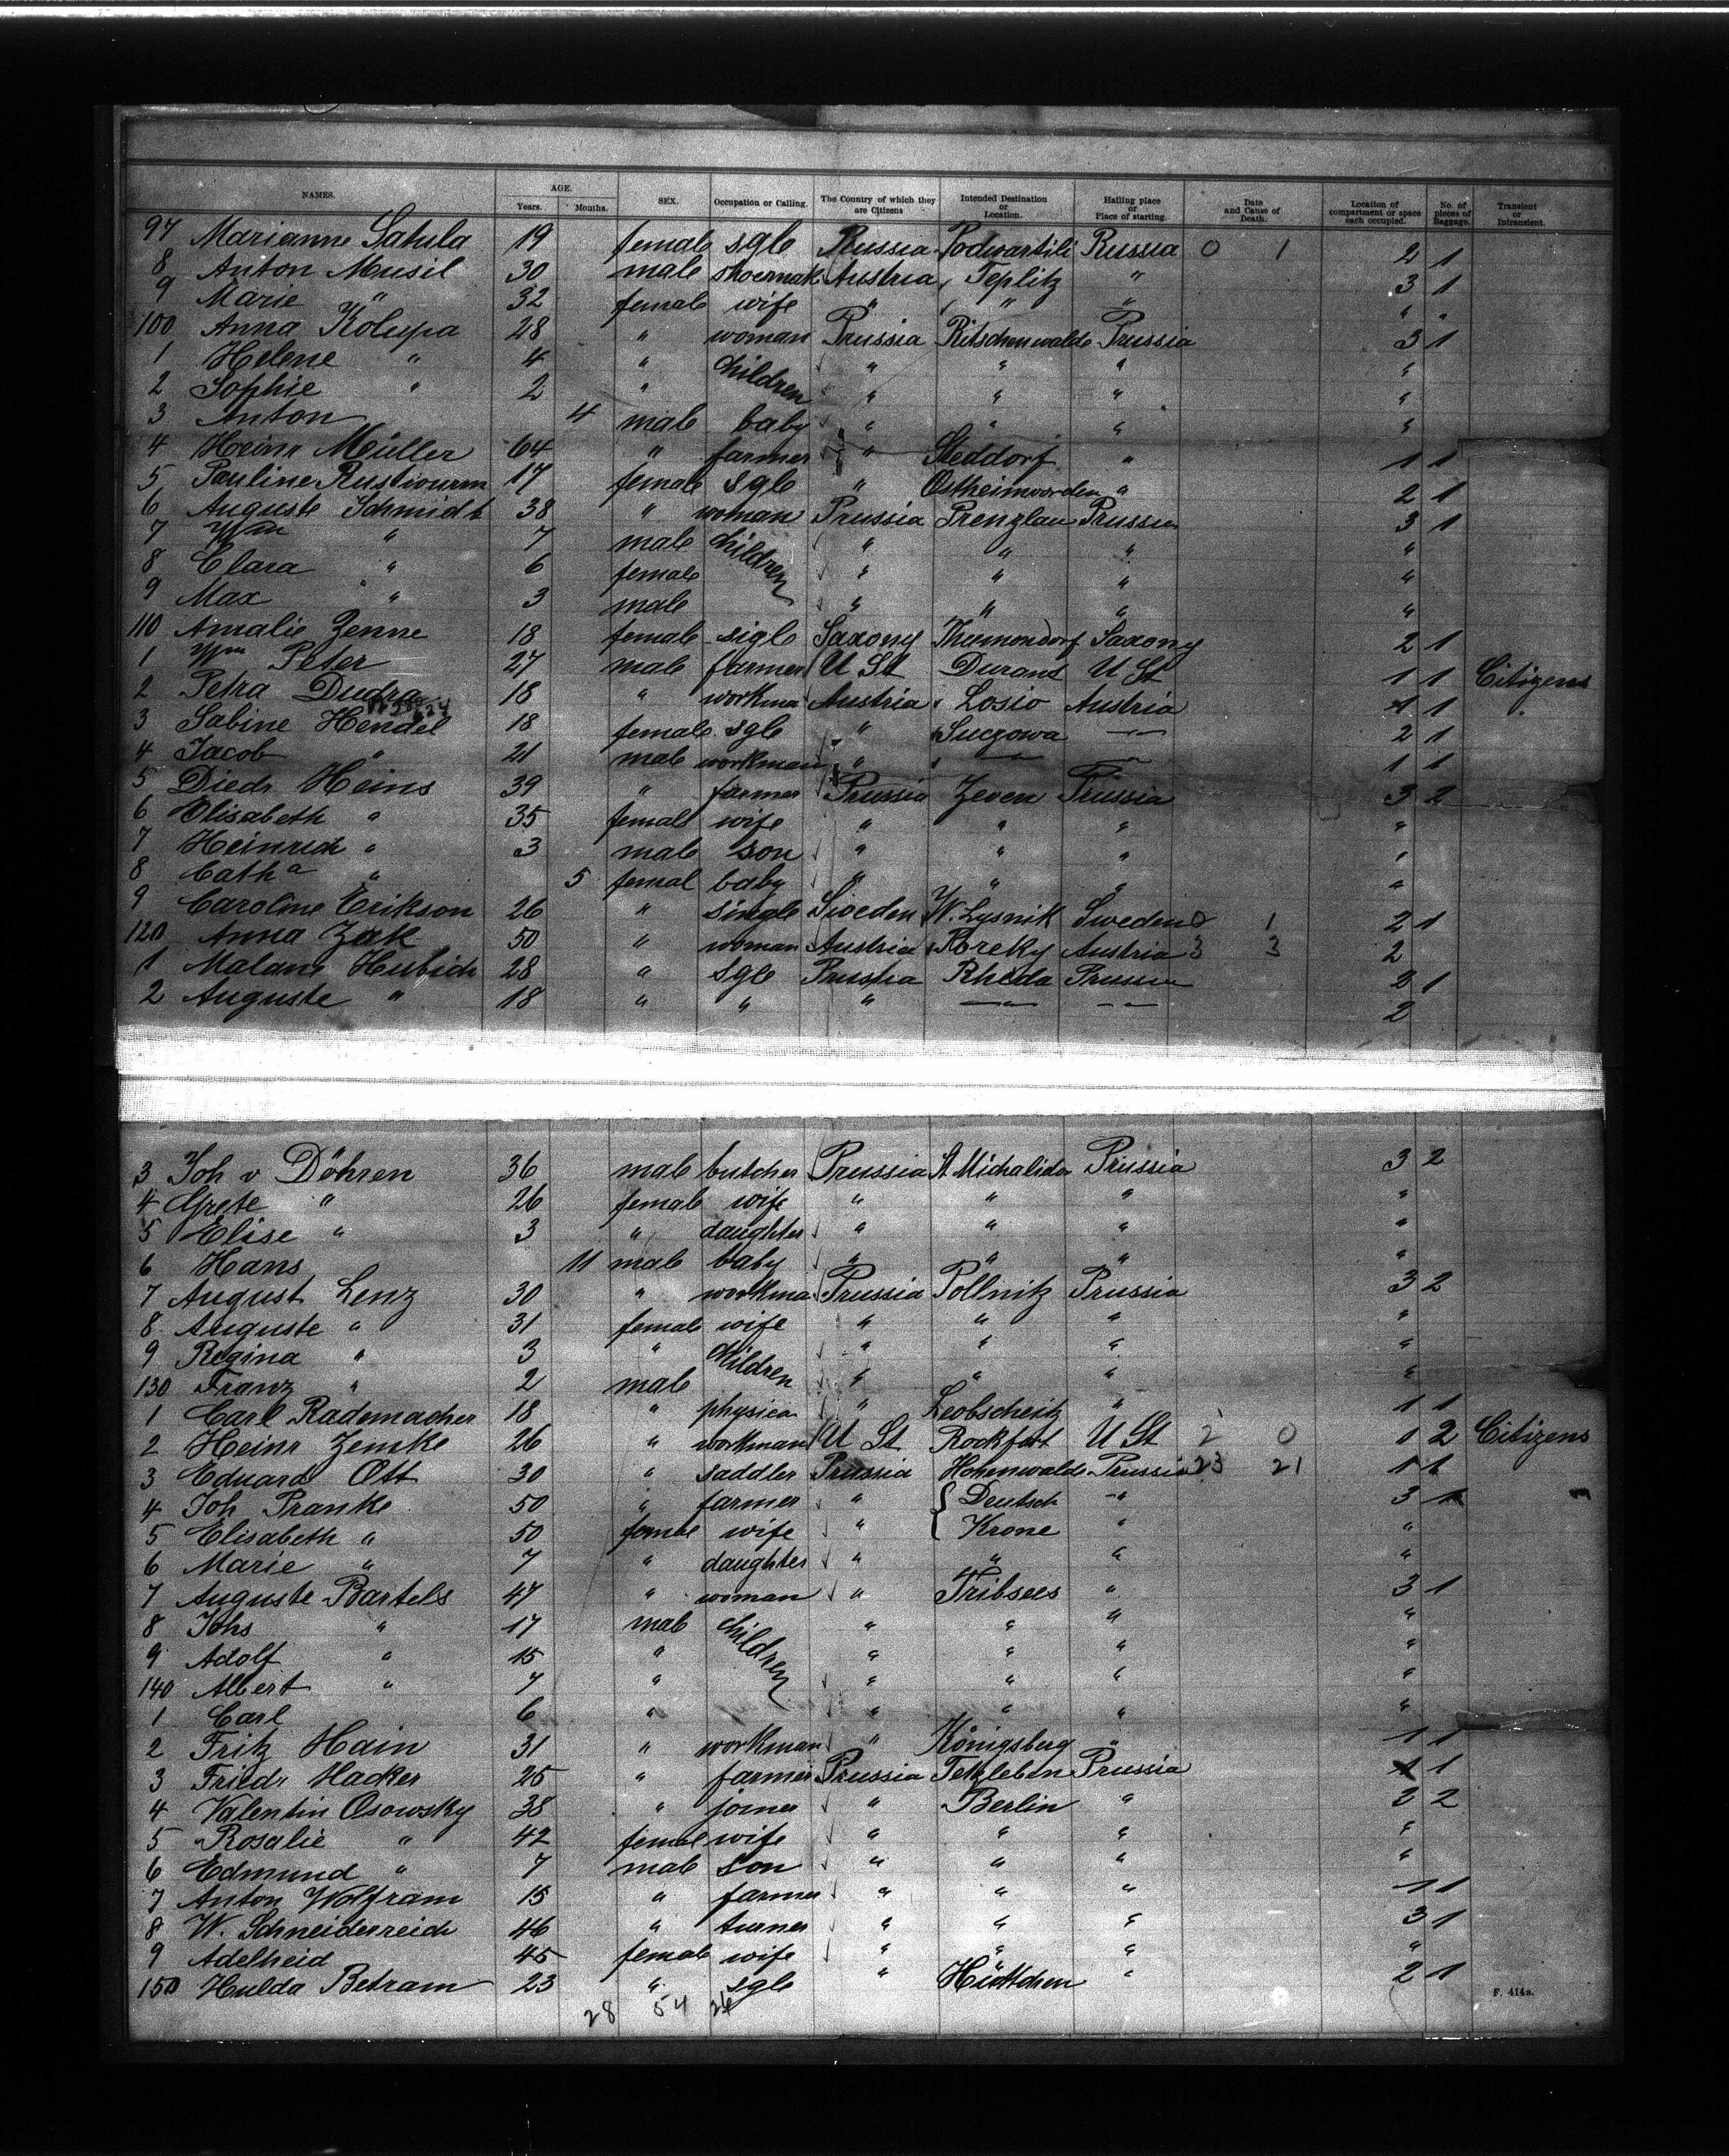 NAMES. AGE. Years. Months. SEX. Occupation or Calling. The Country of which they are Citizens Intended Destination or Location. Hailing place or Place of starting. Date and Cause of Death. Location of compartment or space each occupied. No. of pieces of Baggage. Transient or Intransient.
97 Marianne Satula 19 female sgle Russia Podwartili Russia 0 1 2 1
8 Anton Musil 30 male shoemak Austria Teplitz " 3 1
9 Marie " 32 female wife " " " " "
100 Anna Kolupa 28 " woman Prussia Ritschenwalde Prussia 3 1
1 Helene " 4 " children " " " "
2 Sophie " 2 " " " " "
3 Anton 4 male baby " " " "
4 Heinr Müller 64 " farmer " Steddorf " 1 1
5 Pauline 17 female sgle " " 2 1
6 Auguste Schmidt 38 " woman Prussia Prenzlau Prussia 3 1
7 Wm " 7 male children " " " "
8 Clara " 6 female " " " "
9 Max " 3 male " " " "
110 Amalie Zenne 18 female sigle Saxony Saxony 2 1
1 Wm Peter 27 male farmer U St Durant U St 1 1 Citizens
2 Petra Dudra 18 " workma Austria Losio Austria 1 1
3 Sabine Hendel 18 female sgle " Suczowa —"— 2 1
4 Jacob " 21 male workman " —"— —"— 1 1
5 Diedr Heins 39 " farmer Prussia Zeven Prussia 3 2
6 Elisabeth " 35 female wife " " " "
7 Heinrich " 3 male son " " " "
8 Catha " 5 femal baby " " " "
9 Caroline Erikson 26 " single Sweden W. Lysnik Sweden 0 1 2 1
120 Anna Zak 50 " woman Austria Roreky Austria 3 3 2
1 Malane Hubich 28 " sgle Prussia Rheda Prussia 2 1
2 Auguste " 18 " " " —"— —"— 2
3 Joh v Döhren 36 male butcher Prussia St Prussia 3 2
4 Grete " 26 female wife " " " "
5 Elise " 3 " daughter " " " "
6 Hans 11 male baby " " " "
7 August Lenz 30 " workma Prussia Pollnitz Prussia 3 2
8 Auguste " 31 female wife " " " "
9 Regina " 3 " children " " " "
130 Franz " 2 male " " " "
1 Carl Rademacher 18 " physica " Leobscheitz " 1 1
2 Heinr Zemke 26 " workman U St Rockfort U St 2 0 1 2 Citizens
3 Eduard Ott 30 " saddler Prussia Hohenwalde Prussia 23 21 1 1
4 Joh Pranke 50 " farmer " { Deutsch " 3 1
5 Elisabeth " 50 femal wife " { Krone " "
6 Marie " 7 " daughter " " " "
7 Auguste Bartels 47 " woman " Tribsees " 3 1
8 Johs " 17 male children " " " "
9 Adolf " 15 " " " " "
140 Albert " 7 " " " " "
1 Carl 6 " " " " "
2 Fritz Hain 31 " workman " Königsberg " 1 1
3 Friedr Hacker 25 " farmer Prussia Tetzleben Prussia 1 1
4 Valentin Osowsky 38 " joiner " Berlin " 3 2
5 Rosalie " 42 femal wife " " " "
6 Edmund " 7 male son " " " "
7 Anton Wolfram 15 " farmer " " " 1 1
8 W. Schneiderreich 46 " turner " " " 3 1
9 Adelheid 45 female wife " " " "
150 Hulda Betram 23 " sgle " Hüttchen " 2 1
28 54 26
F. 414a.